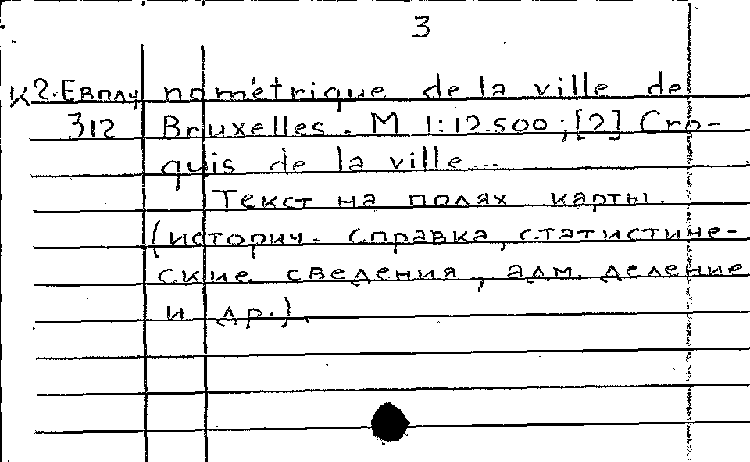 3
К2-Евплч nométrique de la ville de
312 Bruxelles. М 1:12.500; [2] Cro-
quis de la ville...
Текст на полях карты
(историч. справка, статистиче-
ские сведения, адм. деление
и др.).